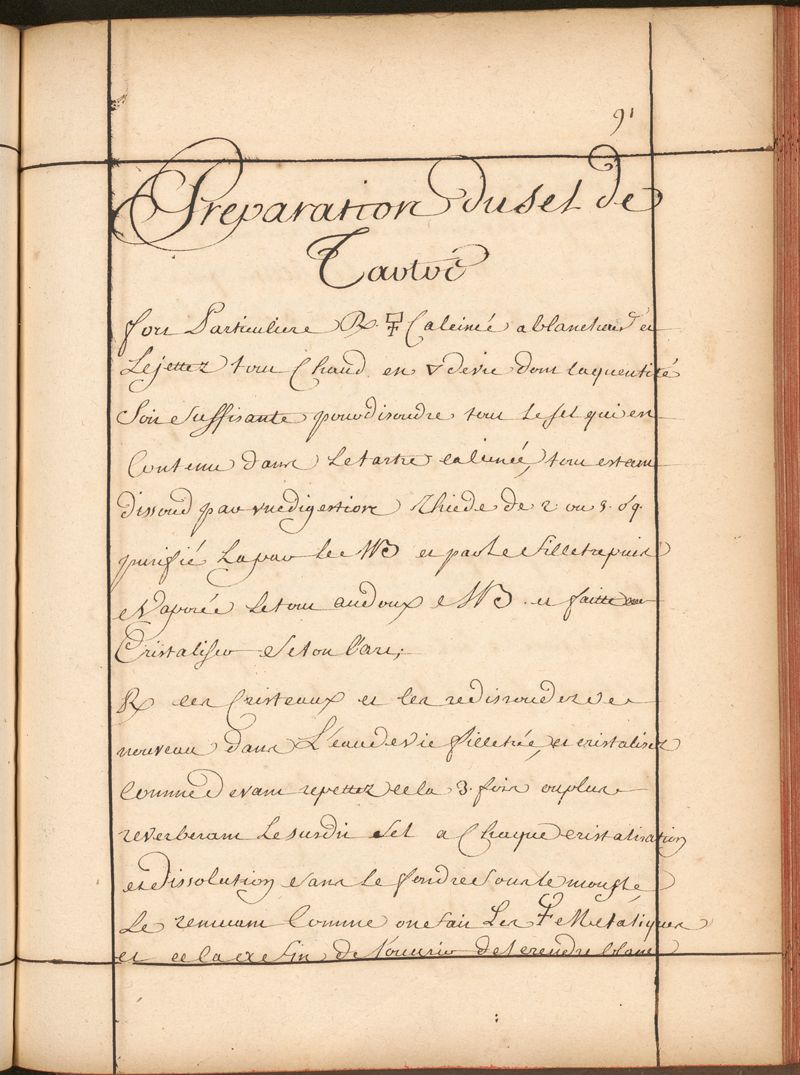 91
Preparation du sel de
Tartre
fort Particuliere ℞ Calcinée a blancheur et
Le jettez tout Chaud en 🜄 de vie dont la quentité
Soit Suffisante pour disoudre tout Le sel qui est
Contenu dans Le tartre calciné, tout estant
dissoud par une digestion thiede de 2 ou 3
purifié La par Le MB et par le filtre puis
Evaporée Le tout au doux MB et faitte
Cristaliser Selon L'art;
℞ ces Cristeaux et les redissoudez de
nouveau dans L'eau de vie filletrée, et cristalisez
Comme devant repettez cela 3 fois ou plus
reverberant Le susdit Sel a Chaque cristalisation
et dissolution sans le fondre Sous le moufle
Le remuant Comme on fait Les Metaliques
et cela a fin de L'ouvrir de le rendre blanc